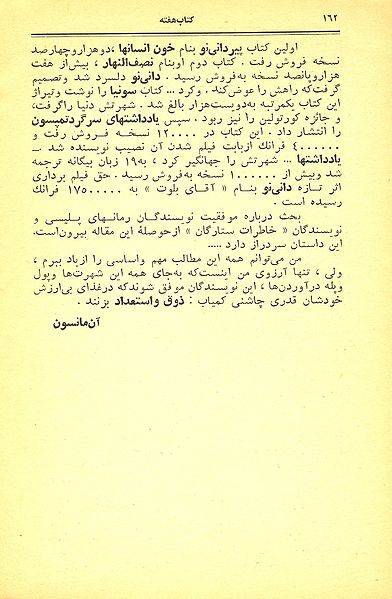 ۱۶۲
کتاب هفته
اولین کتاب پیردانی‌نو بنام خون انسانها ، دوهزاروچهارصد
نسخه فروش رفت . کتاب دوم اوبنام نصف‌النهار ، بیش‌از هفت
هزاروپانصد نسخه به‌فروش رسید . دانی‌نو دلسرد شد وتصمیم
گرفت‌که راهش را عوض‌کند . وکرد ... کتاب سونیا را نوشت وتیراژ
این کتاب یکمرتبه به‌دویست‌هزار بالغ شد . شهرتش دنیا راگرفت،
و جائزه کورتولین را نیز ربود . سپس یادداشتهای سرگردتمیسون
را انتشار داد . این کتاب در ۱۲۰۰۰۰ نسخـه فـروش رفت و
۴۰۰۰۰۰۰ فرانك ازبابت فیلم شدن آن نصیب نویسنده شد ـ
یادداشتها ... شهرتش را جهانگیر کرد ، به۱۹ زبان بیگانه ترجمه
شد وبیش از ۱۰۰۰۰۰۰ نسخه به‌فروش رسید . حق فیلم برداری
اثر تازه دانی‌نو بنـام « آقـای بلوت » به ۱۷۵۰۰۰۰۰ فرانك
رسیده است .
بحث درباره موفقیت نویسندگـان رمانهـای پلیسی و
نویسندگان « خاطرات ستارگان » ازحوصلهٔ این مقاله بیرون‌است.
این داستان سردراز دارد .....
من می‌توانم همه این مطالب مهم واساسی را ازیاد ببرم ،
ولی ، تنها آرزوی من اینست‌که به‌جای همه این شهرت‌ها وپول
وپله درآوردن‌ها ، این نویسندگان موفق شوندکه درغذای بی‌ارزش
خودشان قدری چاشنی کمیاب : ذوق واستعداد بزنند .
آن‌مانسون